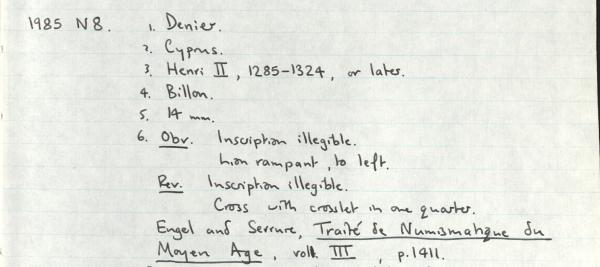 1985 N8. 1. Denier.
2. Cyprus.
3. Henri II, 1285-1324, or later.
4. Billon.
5. 14 mm.
6. Obv. Inscription illegible.
Lion rampant, to left.
Rev. Inscription illegible.
Cross with crosslet in one quarter.
Engel and Serrure, Traité de Numismatique du
Moyen Age, vol. III, p.1411.